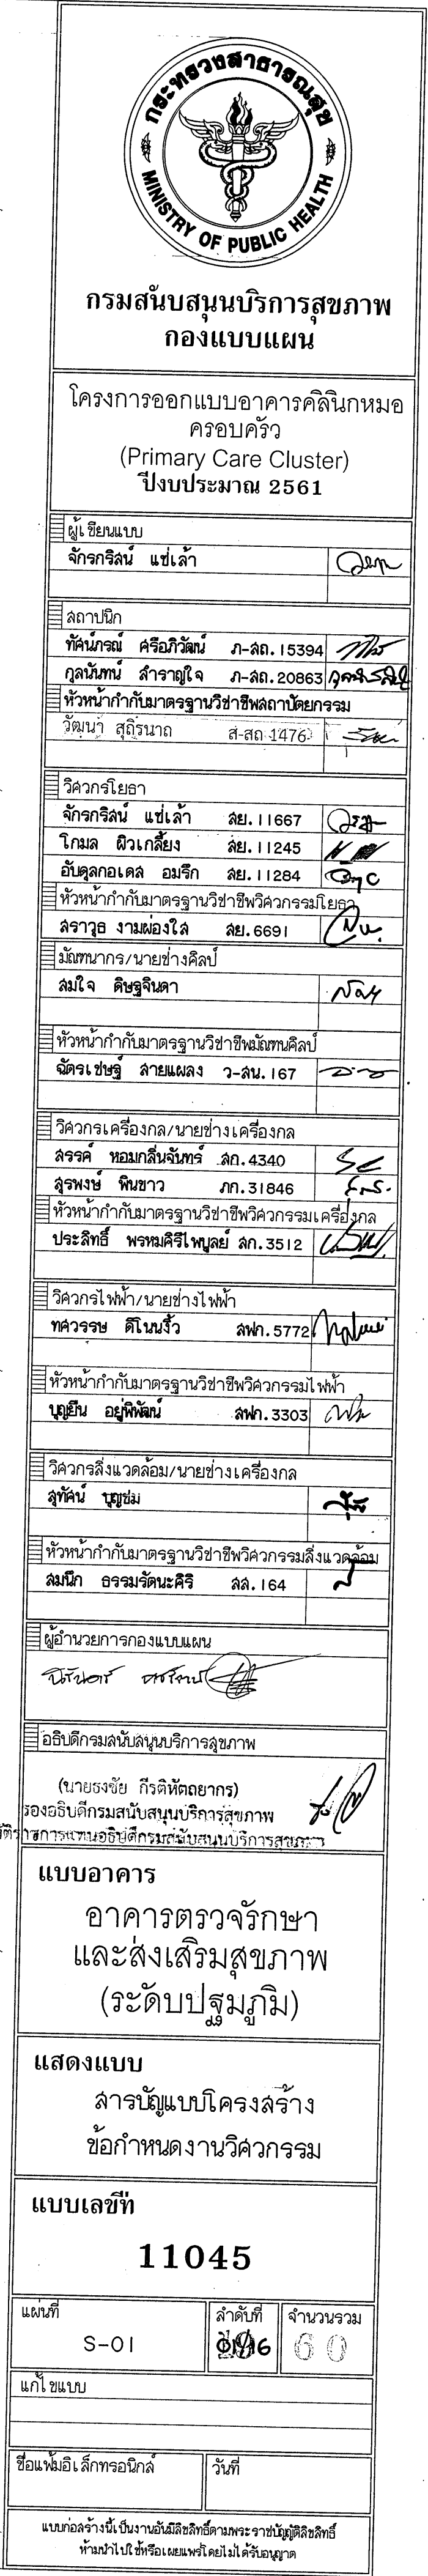 กระทรวงสาธารณสุข
MINISTRY OF PUBLIC HEALTH
กรมสนับสนุนบริการสุขภาพ
กองแบบแผน
โครงการออกแบบอาคารคลินิกหมอ
ครอบครัว
(Primary Care Cluster)
ปีงบประมาณ 2561
ผู้เขียนแบบ
จักรกริสน์ แซ่เล้า
สถาปนิก
ทัศน์ภรณ์ ศรีอภิวัฒน์ ภ-สถ.15394
กุลนันทน์ สำราญใจ ภ-สถ.20863
หัวหน้ากำกับมาตรฐานวิชาชีพสถาปัตยกรรม
วัฒนา สุถิรนาถ ส-สถ 1476
วิศวกรโยธา
จักรกริสน์ แซ่เล้า สย.11667
โกมล ผิวเกลี้ยง สย.11245
อับดุลกอเดส อมรึก สย.11284
หัวหน้ากำกับมาตรฐานวิชาชีพวิศวกรรมโยธา
สราวุธ งามผ่องใส สย.6691
มัณฑนากร/นายช่างศิลป์
สมใจ ดิษฐจินดา
หัวหน้ากำกับมาตรฐานวิชาชีพมัณฑนศิลป์
ฉัตรเชษฐ์ สายแผลง ว-สน.167
วิศวกรเครื่องกล/นายช่างเครื่องกล
สรรค์ หอมกลิ่นจันทร์ สก.4340
สุรพงษ์ พินขาว ภก.31846
หัวหน้ากำกับมาตรฐานวิชาชีพวิศวกรรมเครื่องกล
ประสิทธิ์ พรหมคิรีไพบูลย์ สก.3512
วิศวกรไฟฟ้า/นายช่างไฟฟ้า
ทศวรรษ ดีโนนงิ้ว สฟก.5772
หัวหน้ากำกับมาตรฐานวิชาชีพวิศวกรรมไฟฟ้า
บุญยืน อยู่พิพัฒน์ สฟก.3303
วิศวกรสิ่งแวดล้อม/นายช่างเครื่องกล
สุทัศน์ บุญช่ม
หัวหน้ากำกับมาตรฐานวิชาชีพวิศวกรรมสิ่งแวดล้อม
สมนึก ธรรมรัตนะคิริ สส.164
ผู้อำนวยการกองแบบแผน
อธิบดีกรมสนับสนุนบริการสุขภาพ
(นายธงชัย กีรติหัตถยากร)
รองอธิบดีกรมสนับสนุนบริการสุขภาพ
ราชการแทนอธิบดีกรมสนับสนุนบริการสุขภาพ
แบบอาคาร
อาคารตรวจรักษา
และส่งเสริมสุขภาพ
(ระดับปฐมภูมิ)
แสดงแบบ
สารบัญแบบโครงสร้าง
ข้อกำหนดงานวิศวกรรม
แบบเลขที่
11045
แผ่นที่ ลำดับที่ จำนวนรวม
S-01 60
แก้ไขแบบ
ชื่อแฟ้มอิเล็กทรอนิกส์ วันที่
แบบก่อสร้างนี้เป็นงานอันมีลิขสิทธิ์ตามพระราชบัญญัติลิขสิทธิ์
ห้ามนำไปใช้หรือเผยแพร่โดยไม่ได้รับอนุญาต